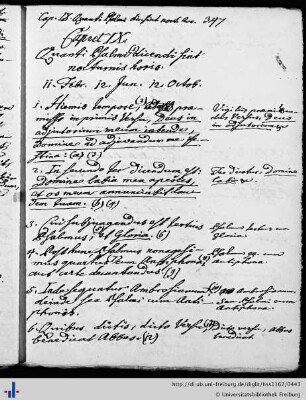 Cap. IX Quanti Psalmi dicendi sint noct. hor. 347
Caput IX.
Quanti Psalmi dicendi sint
nocturnis horis.
11. Febr. 12. Jun. 12. Octob.
1. Hiemis tempore, prae-
misso in primis Versu, Deus in
adjutorium meum intende,
Domine ad adjuvandum me fe-
stina: (a) (2)
Deus
in adjutorium
2. In secundo ter dicendum est:
Domine labia mea aperies,
et os meum annunciabit lau-
dem tuam. (b) (4)
Ter dicitur, Domine
labia
3. Cui subjungendus est tertius
Psalmus, et Gloria. (6)
Psalmus tertius
Gloria.
4. Post hunc Psalmus nonagesi-
mus quartus cum Antiphona
aut certe decantandus. (9)
Psalm
Antiphona
5. Inde sequatur Ambrosianum
deinde sex Psalmi cum Anti-
phonis.
Ambrosianum
Sex Psalmi cum
Antiphonis.
6. Quibus dictis, dicto Versu,
benedicat Abbas. (12)
Dicto versu, Abbas
benedicat
http://dl.ub.uni-freiburg.de/diglit/hs1162/0443
© Universitätsbibliothek Freiburg